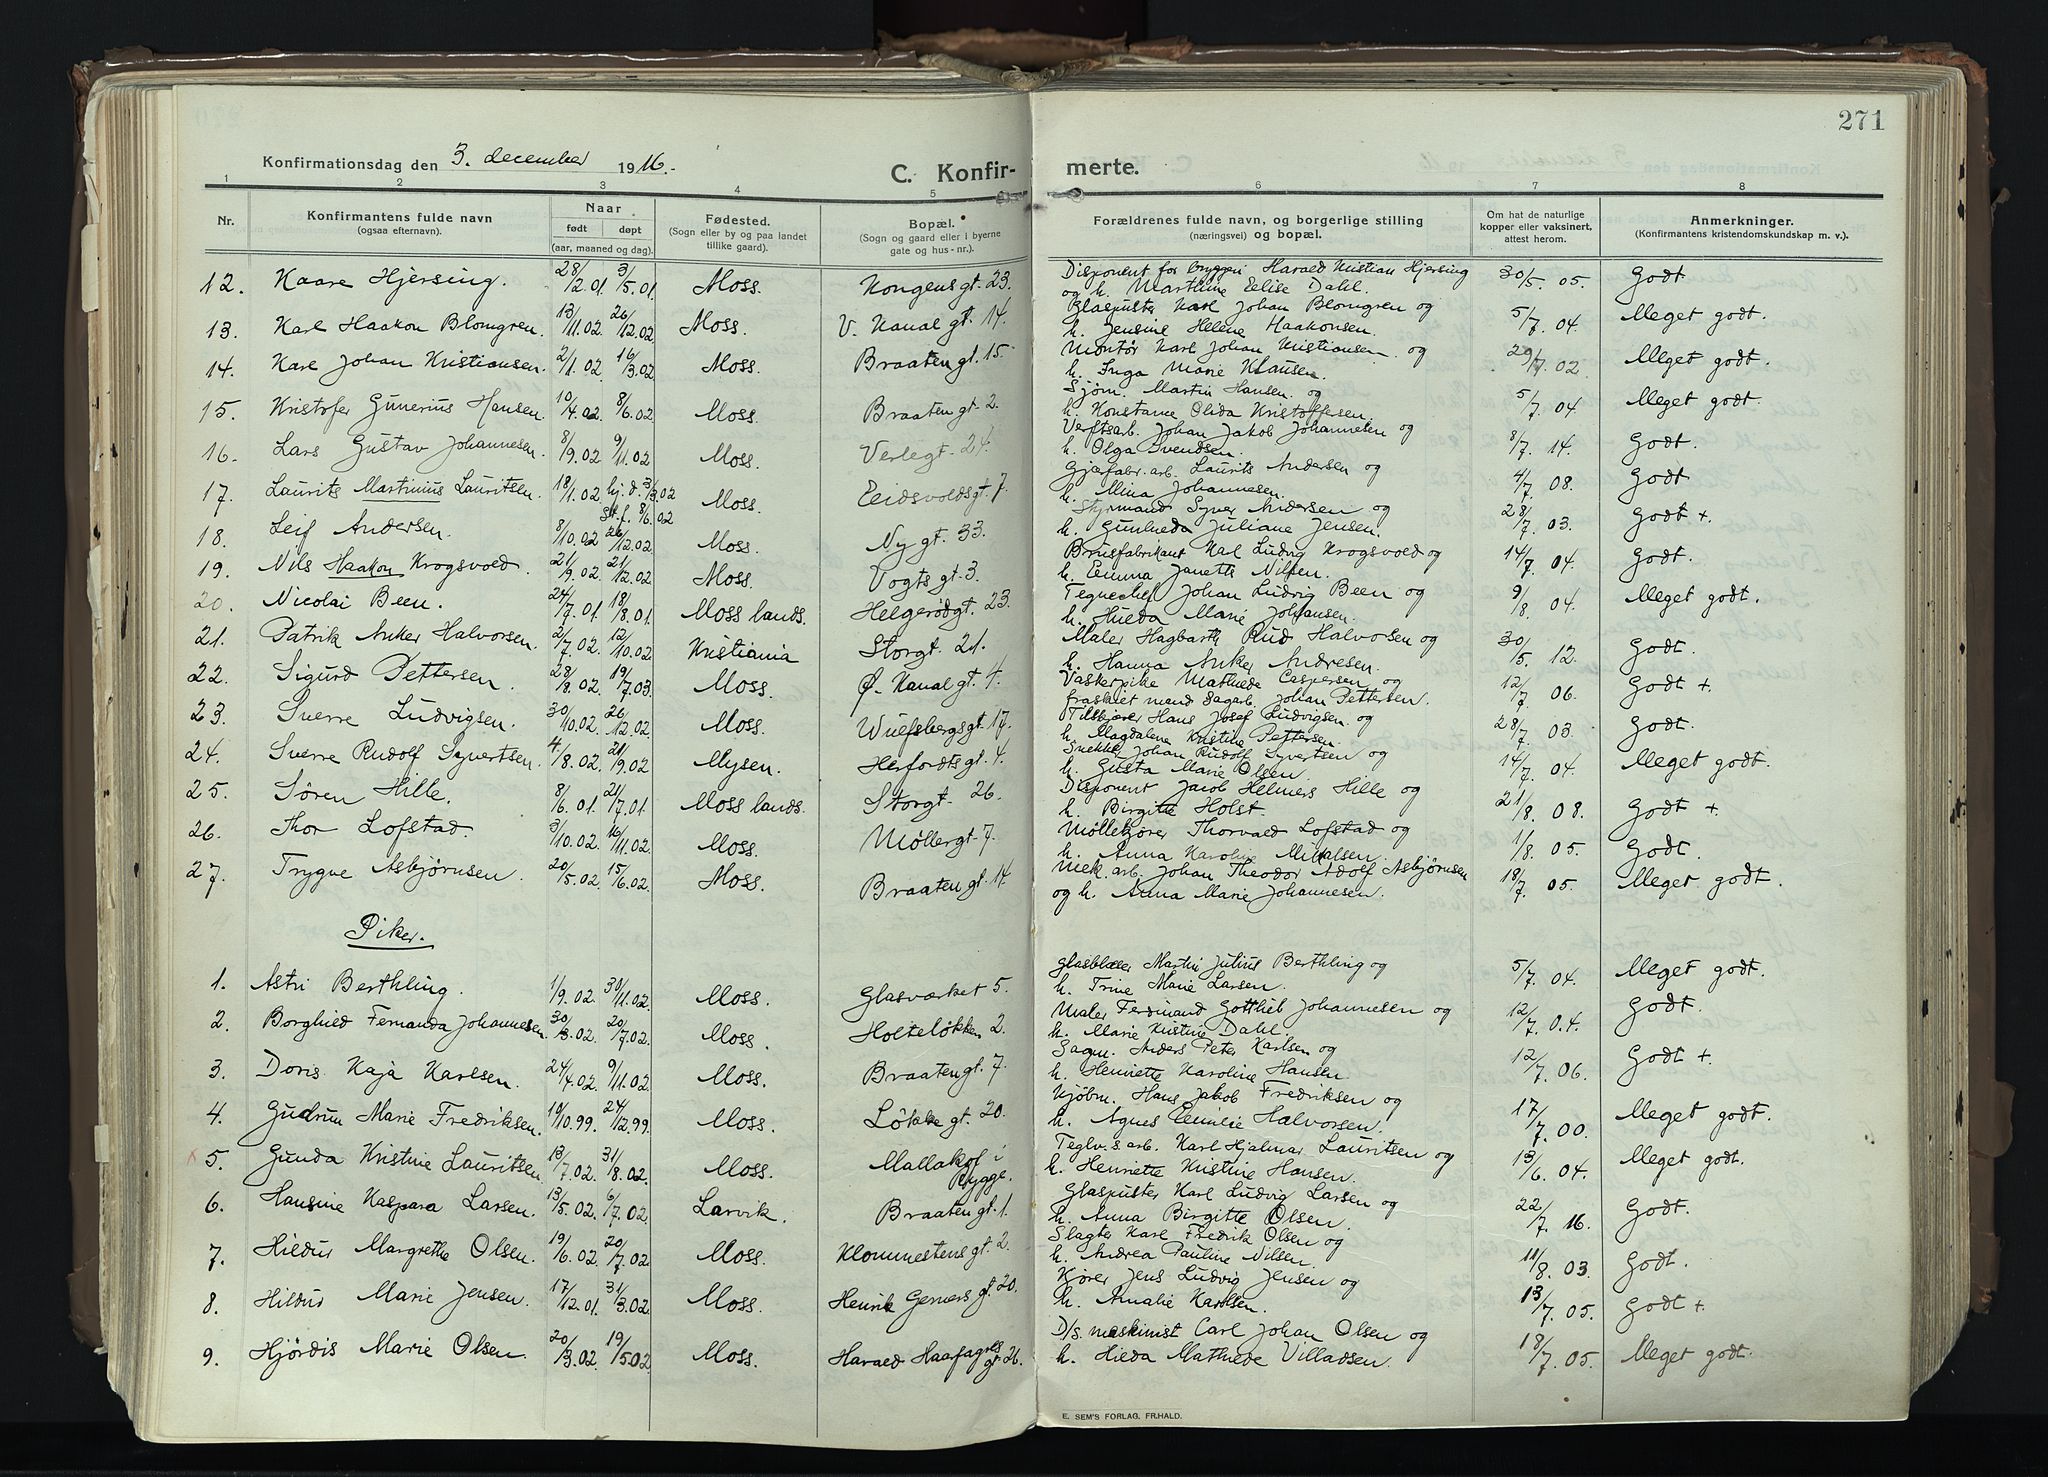 271
Konfirmationsdag den 3. december 1916.-
C. Konfirmerte.
1 2 3 4 5 6 7 8
Nr. Konfirmantens fulde navn (ogsaa efternavn). Naar født døpt (aar, maaned og dag). Fødested. (Sogn eller by og paa landet tillike gaard). Bopæl. (Sogn og gaard eller i byerne gate og hus-nr.). Forældrenes fulde navn, og borgerlige stilling (næringsvei) og bopæl. Om hat de naturlige kopper eller vaksinert, attest herom. Anmerkninger. (Konfirmantens kristendomskundskap m. v.).
12. Kaare Hjersing. 28/2.01. 3/5.01. Moss. Kongens gt. 23. Disponent for bryggeri Harald Kristian Hjersing 30/5.05. Godt.
og h. Marthine Elise Dahl.
13. Karl Haakon Blomgren. 13/11.02. 26/12.02 Moss. V. Kanal gt. 14. Glaspuster Karl Johan Blomgren og 5/7.04. Meget godt.
h. Jensine Helene Haakonsen.
14. Karl Johan Kristiansen. 2/1.02. 16/3.02 Moss. Braaten gt. 15 Montør Karl Johan Kristiansen og 29/7.02. Meget godt.
h. Inga Marie Klausen.
15. Kristofer Gunerius Hansen. 10/4.02. 8/6.02 Moss. Braaten gt. 2. Sjøm. Martin Hansen og 5/7.04. Meget godt.
h. Konstanse Olida Kristoffersen.
16. Lars Gustav Johannesen. 8/9.02. 9/11.02 Moss. Verlegt. 24. Verftsarb. Johan Jakob Johannesen og 8/7.14. Godt.
h. Olga Svendsen.
17. Laurits Martinius Lauritsen. 18/1.02. hj. d. 3/3.02 Moss. Eidsvoldsgt. 7. Gjærfabr. arb. Laurits Andersen og 4/7.08. Godt
st. f. 8/6.02
h. Mina Johannesen.
18. Leif Andersen. 8/10.02 26/12.02. Moss. Ny gt. 33. Styrmand Syver Andersen og 28/7.03. Godt +.
h. Gunhilda Juliane Jensen.
19. Nils Haakon Krogsvold. 21/9.02. 21/12.02 Moss. Vogts gt. 3. Brusfabrikant Karl Ludvig Krogsvold og 14/7.04. Godt.
h. Emma Janette Nilsen.
20. Nicolai Been. 24/7.01. 18/8.01. Moss lands. Helgerødgt. 23. Johan Ludvig Been og 9/8.04. Meget godt.
h. Hilda Marie Johansen.
21. Patrik Anker Halvorsen. 2/7.02. 12/10.02 Kristiania Storgt. 21. Maler Hagbarth Rud Halvorsen og 30/5.12. Godt.
h. Hanna Anker Andresen.
22. Sigurd Pettersen. 28/8.02. 19/7.03. Moss. Ø. Kanal gt. 4. Vaskerpike Mathilde Caspersen og 12/7.06. Godt +.
fraskilt mand dagarb. Johan Pettersen.
23. Sverre Ludvigsen. 30/10.02. 26/12.02. Moss. Wulfsbergs gt. 17. Hans Josef Ludvigsen og 28/7.03. Godt.
h. Magdalene Kristine Pettersen.
24. Sverre Rudolf Syvertsen. 4/8.02. 21/9.02 Mysen. Herfordts gt. 4. Snekker Johan Rudolf Syvertsen og 14/7.04. Meget godt.
h. Gusta Marie Olsen.
25. Søren Hille. 8/6.01. 21/7.01. Moss lands. Storgt. 26. Disponent Jacob Helmers Hille og 21/8.08. Godt +
h. Birgitte Holst.
26. Thor Lofstad. 3/10.02. 16/11.02. Moss. Møllergt. 7. Møllekjører Thorvald Lofstad og 1/8.05. Godt.
h. Anna Karoline Mikalsen.
27. Trygve Asbjørnsen. 20/5.02. 15/6.02 Moss. Braaten gt. 14. Mek. arb. Johan Theodor Adolf Asbjørnsen 18/7.05. Meget godt.
og h. Anna Marie Johannesen.
Piker.
1. Astri Berthling. 1/9.02. 30/11.02. Moss. Glasværket 5. Glasblæser Martin Julius Berthling og 5/7.04. Meget godt.
h. Trine Marie Larsen.
2. Borghild Fernanda Johannesen 30/3.02. 20/7.02. Moss. Holteløkken 2. Maler Ferdinand Gottlieb Johannesen og 12/7.04. Godt.
h. Marie Kristine Dahl.
3. Doris Kaja Karlsen. 24/4.02. 9/11.02. Moss. Braaten gt. 7. Sagm. Anders Peter Karlsen og 12/7.06. Godt +.
h. Henriette Karoline Hansen.
4. Gudrun Marie Fredriksen. 19/10.99. 24/12.99. Moss. Løkke gt. 20. Kjøbm. Hans Jakob Fredriksen og 17/7.00. Meget godt.
h. Agnes Emilie Halvorsen.
x 5. Gunda Kristine Lauritsen 13/7.02. 31/8.02. Moss. Mallakof i Rygge. Teglv.s arb. Karl Hjalmar Lauritsen og 13/6.04. Meget godt.
h. Henriette Kristine Hansen.
6. Hansine Kaspara Larsen. 13/5.02. 6/7.02. Larvik. Braaten gt. 1. Glaspuster Karl Ludvig Larsen og 22/7.16. Godt.
h. Anna Birgitte Olsen.
7. Hildur Margrethe Olsen. 19/6.02. 20/7.02. Moss. Klommestens gt. 2. Slagter Karl Fredrik Olsen og 11/8.03. Godt.
h. Andrea Pauline Nilsen.
8. Hildur Marie Jensen. 17/12.01. 31/3.02. Moss. Henrik Gerners gt. 20. Kjører Jens Ludvig Jensen og 13/7.05. Godt +.
h. Amalie Karlsen.
9. Hjørdis Marie Olsen. 20/3.02. 19/5.02 Moss. Harald Haafagres gt. 26. D/s. maskinist Carl Johan Olsen og 18/7.05. Meget godt.
h. Hilda Mathilde Villadsen.
E. SEM'S FORLAG. FR.HALD.